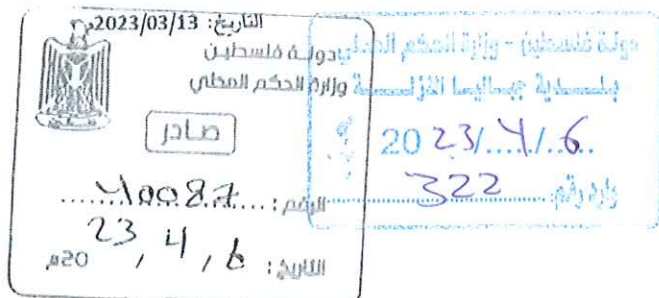 التاريخ: 2023/03/13م
دولة فلسطين
وزارة الحكم المحلي
صادر
الرقم:
التاريخ: 6 / 4 / 23 20م
دولة فلسطين - وزارة الحكم المحلي
بلدية جباليا النزلة
20 23/4/6
وارد رقم: 322